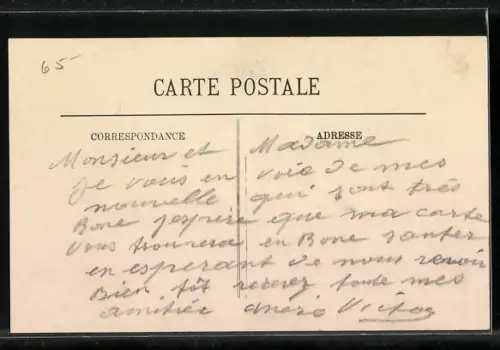 65-
CARTE POSTALE
CORRESPONDANCE
ADRESSE
Monsieur et Madame
Je vous en voie de mes
nouvelle qui sont très
Bone jespère que ma carte
vous trouvera en Bone santer
en esperant de nous revoir
Bien tôt recevez toute mes
amitiér